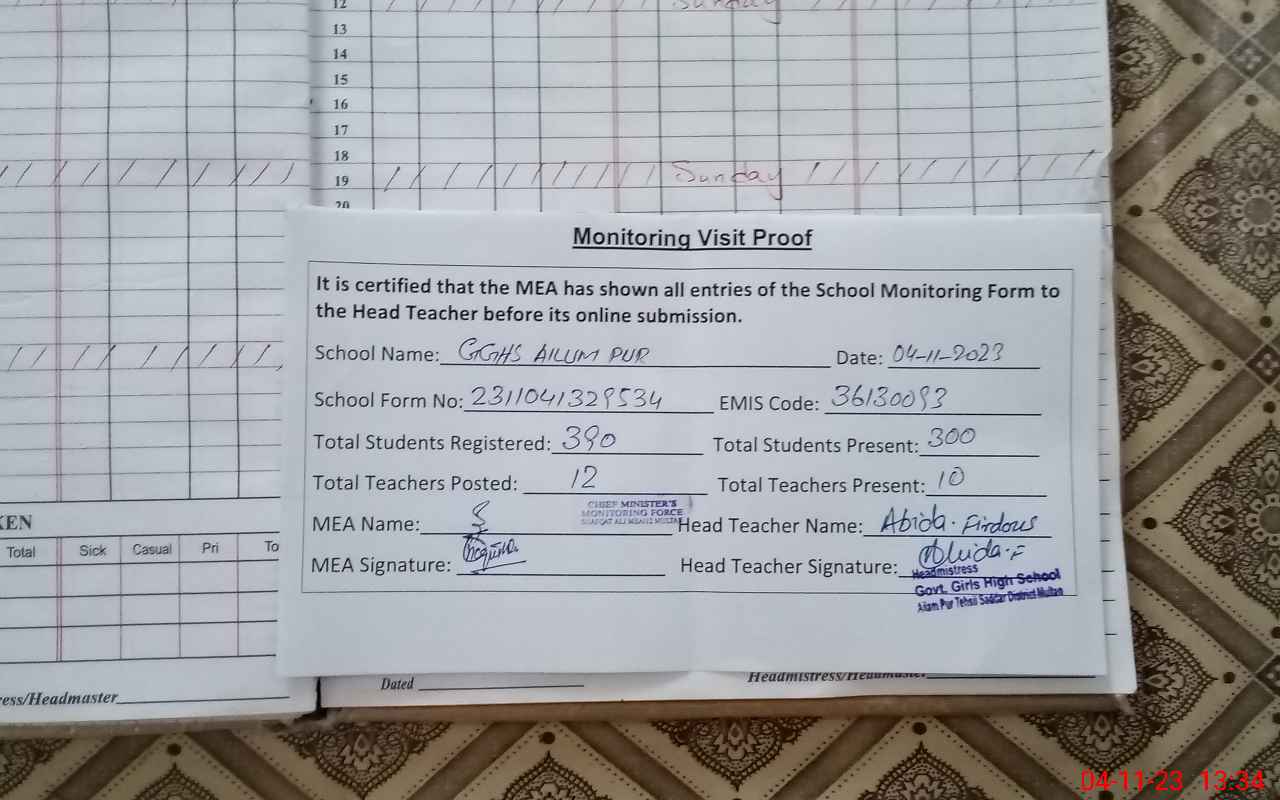 12 Sunday
13
14
15
16
17
18
19 Sunday
20
Monitoring Visit Proof
It is certified that the MEA has shown all entries of the School Monitoring Form to
the Head Teacher before its online submission.
School Name: GGHS AILUM PUR Date: 04-11-2023
School Form No: 2311041329534 EMIS Code: 36130093
Total Students Registered: 390 Total Students Present: 300
Total Teachers Posted: 12 Total Teachers Present: 10
CHIEF MINISTER'S
MONITORING FORCE
MEA Name: Head Teacher Name: Abida. Firdous
MEA Signature: Head Teacher Signature: Abida.F
Headmistress
Govt. Girls High School
Ailam Pur Tehsil Saddar District Multan
KEN
Total Sick Casual Pri To
ress/Headmaster
Dated Headmistress/Headmaster
04-11-23 13:34